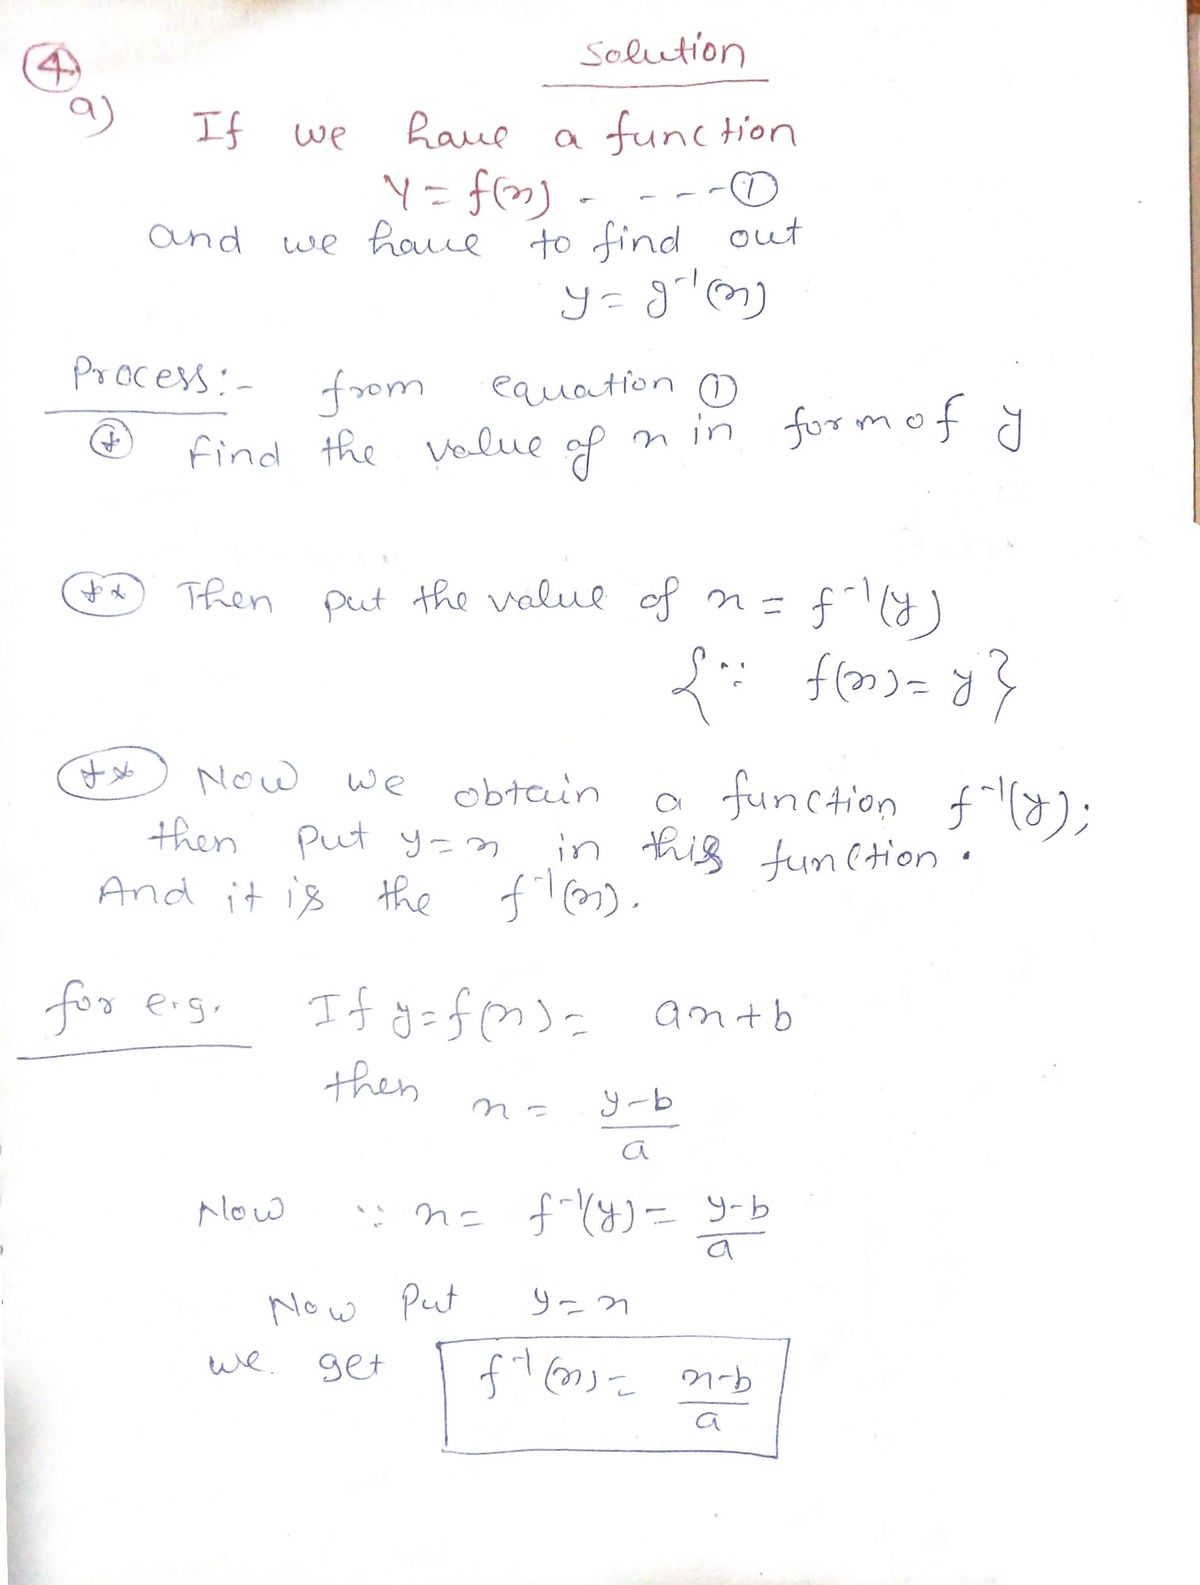 Solution
④
a) If we have a function
y = f(x) - - - - ①
and we have to find out
y = g⁻¹(x)
Process:- from equation ①
(*) Find the value of x in form of y
(**) Then put the value of x = f⁻¹(y)
{∵ f(x) = y}
(**) Now we obtain a function f⁻¹(y);
then put y = x in this function.
And it is the f⁻¹(x).
for e.g. If y = f(x) = ax + b
then x = (y-b)/a
Now ∵ x = f⁻¹(y) = (y-b)/a
Now Put y = x
we get f⁻¹(x) = (x-b)/a